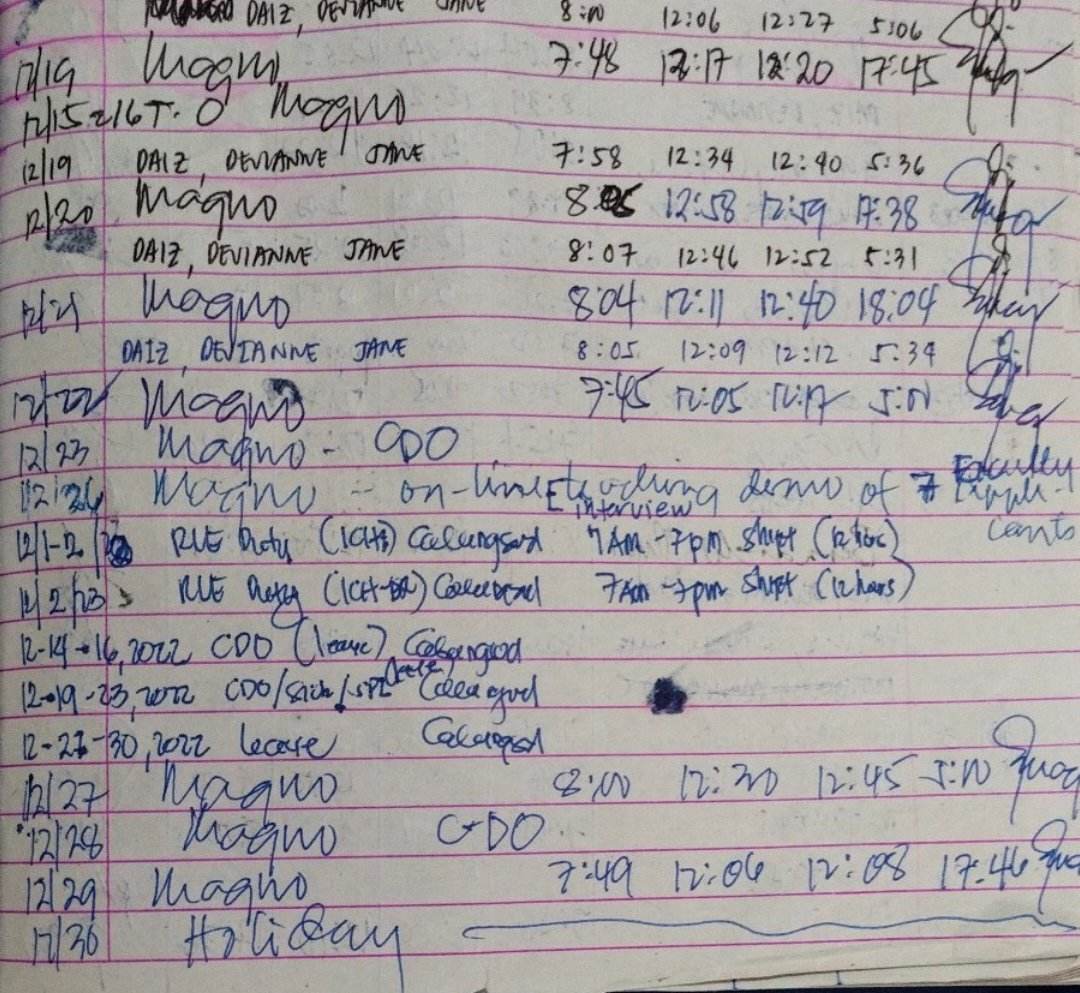 DAIZ, DEVIANNE JANE 8:00 12:06 12:27 5:06
12/19 Magno 7:48 12:17 12:20 17:45
12/15 & 16 T.O Magno
12/19 DAIZ, DEVIANNE JANE 7:58 12:34 12:40 5:36
12/20 Magno 8:05 12:58 12:59 17:38
DAIZ, DEVIANNE JANE 8:07 12:46 12:52 5:31
12/21 Magno 8:04 12:11 12:40 18:04
DAIZ, DEVIANNE JANE 8:05 12:09 12:12 5:34
12/22 Magno 7:45 12:05 12:17 5:00
12/23 Magno - CDO
12/26 Magno - on-line teaching demo of 7 Faculty
E interview Appli-
cants
RLE Duty 7AM-7pm shift (12 hrs)
RLE Duty 7Am-7pm shift (12 hours)
12-14-16, 2022 CDO (leave)
12-19-23, 2022 CDO/sick/SPL leave
12-27-30, 2022 leave
12/27 Magno 8:00 12:30 12:45 5:00
12/28 Magno CDO
12/29 Magno 7:49 12:06 12:08 17:46
12/30 Holiday